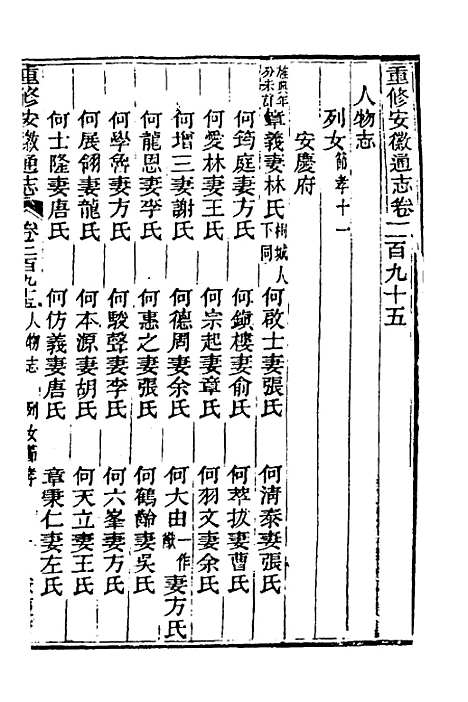 重修安徽通志卷二百九十五
人物志
列女節孝十一
安慶府
旌典年分未詳章義妻林氏桐城人下同 何啟士妻張氏 何清泰妻張氏
何筠庭妻方氏 何鎮樓妻俞氏 何萃拔妻曹氏
何愛林妻王氏 何宗起妻章氏 何羽文妻余氏
何增三妻謝氏 何德周妻余氏 何大由一作猷妻方氏
何龍恩妻李氏 何惠之妻張氏 何鶴齡妻吳氏
何學魯妻方氏 何駿聲妻李氏 何六峯妻方氏
何展翎妻龍氏 何本源妻胡氏 何天立妻王氏
何士隆妻唐氏 何仿義妻唐氏 章秉仁妻左氏
重修安徽通志 卷二百九十五 人物志 列女節孝